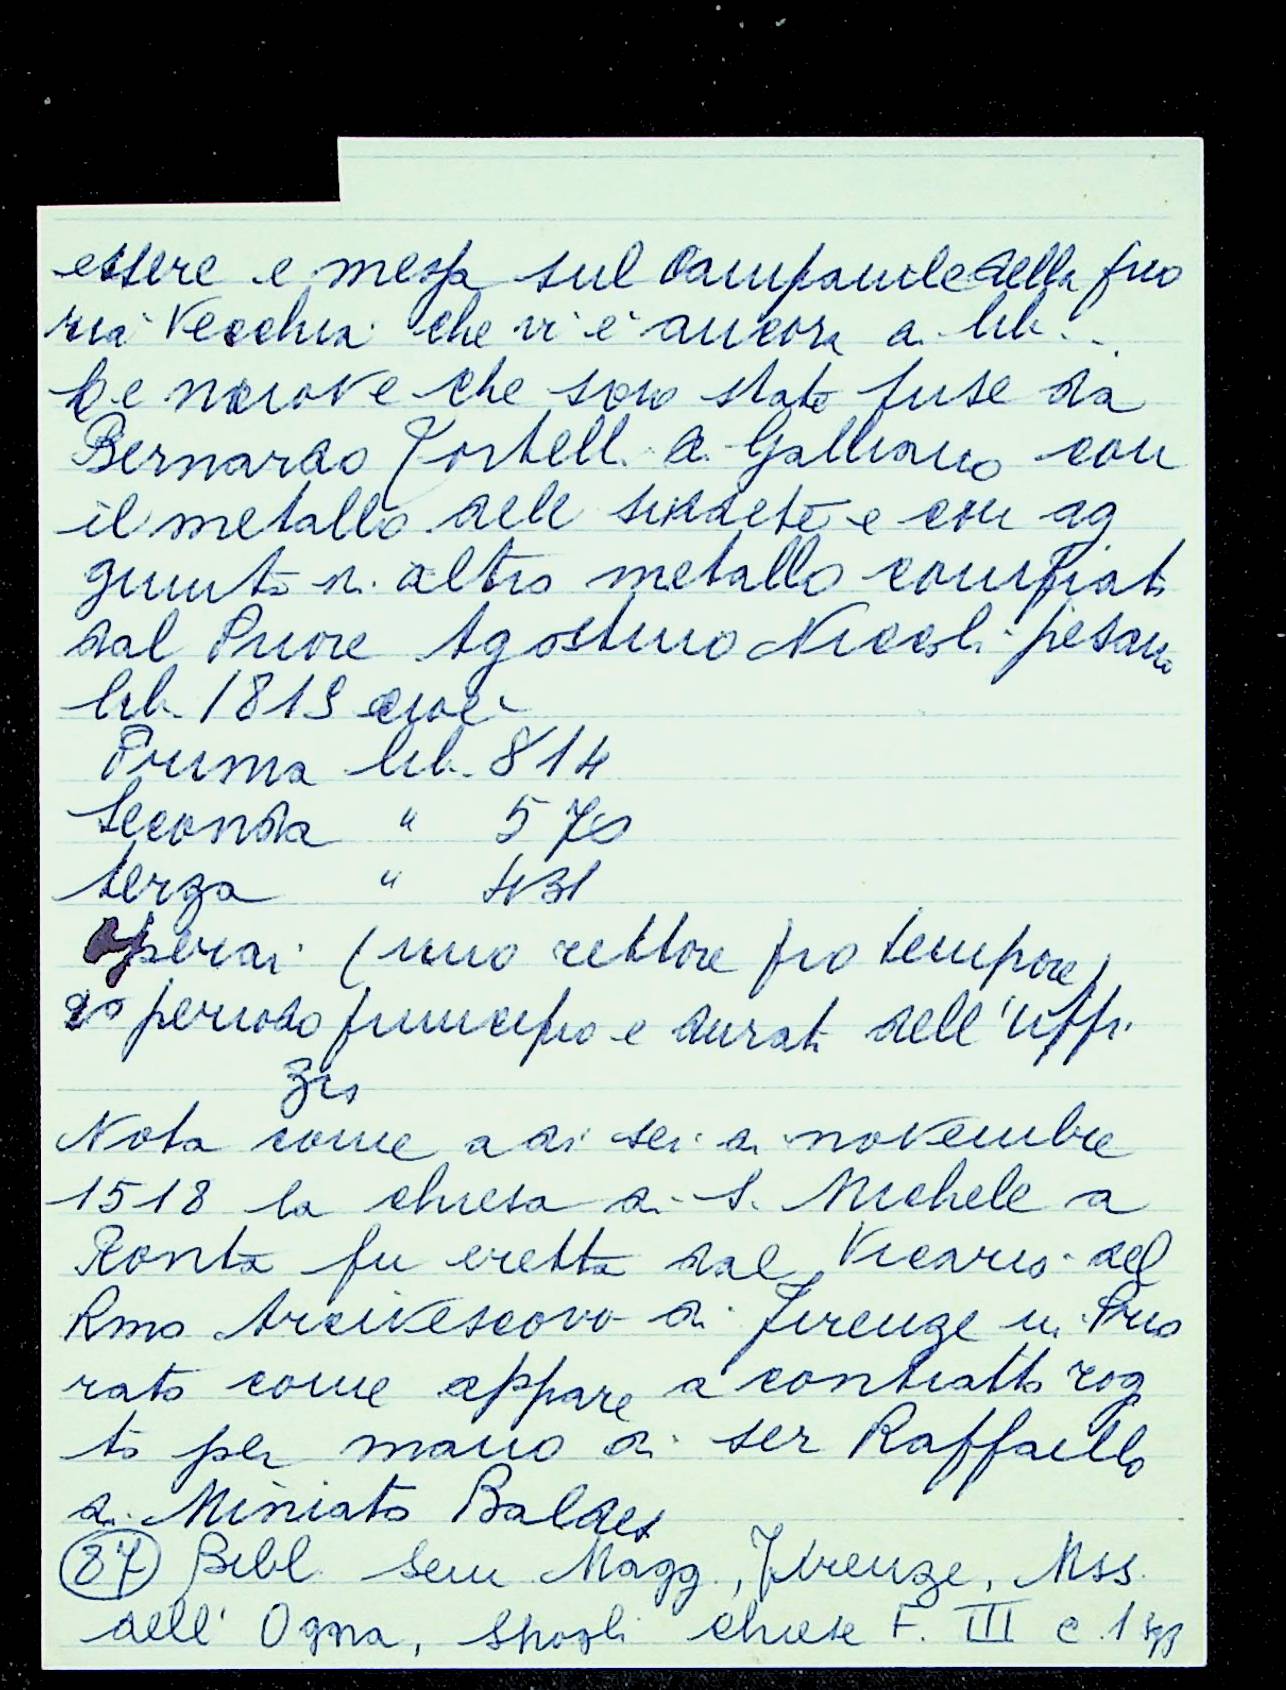 essere e messa sul Campanile della prio
ria Vecchia che vi è ancora di lib...
Le nuove che sono state fuse da
Bernardo Tortelli di Galliano con
il metallo delle suddette e con ag
giunto di altro metallo comprato
dal Priore Agostino Niccoli pesano
lib. 1819 cioè
Prima lib. 814
Seconda " 570
terza " 431
operai (uno rettore pro tempore)
periodo principio e durata dell'uffi
zio
Nota come a dì sei di novembre
1518 la chiesa di S. Michele a
Ronta fu eretta dal Vicario del
Rmo Arcivescovo di Firenze in Prio
rato come appare a contratto rog
to per mano di ser Raffaello
di Miniato Baldes
(87) Bibl. Sem Magg, Firenze, Mss.
dell'Ogna, spogli chiese F. III c. 1 sgg